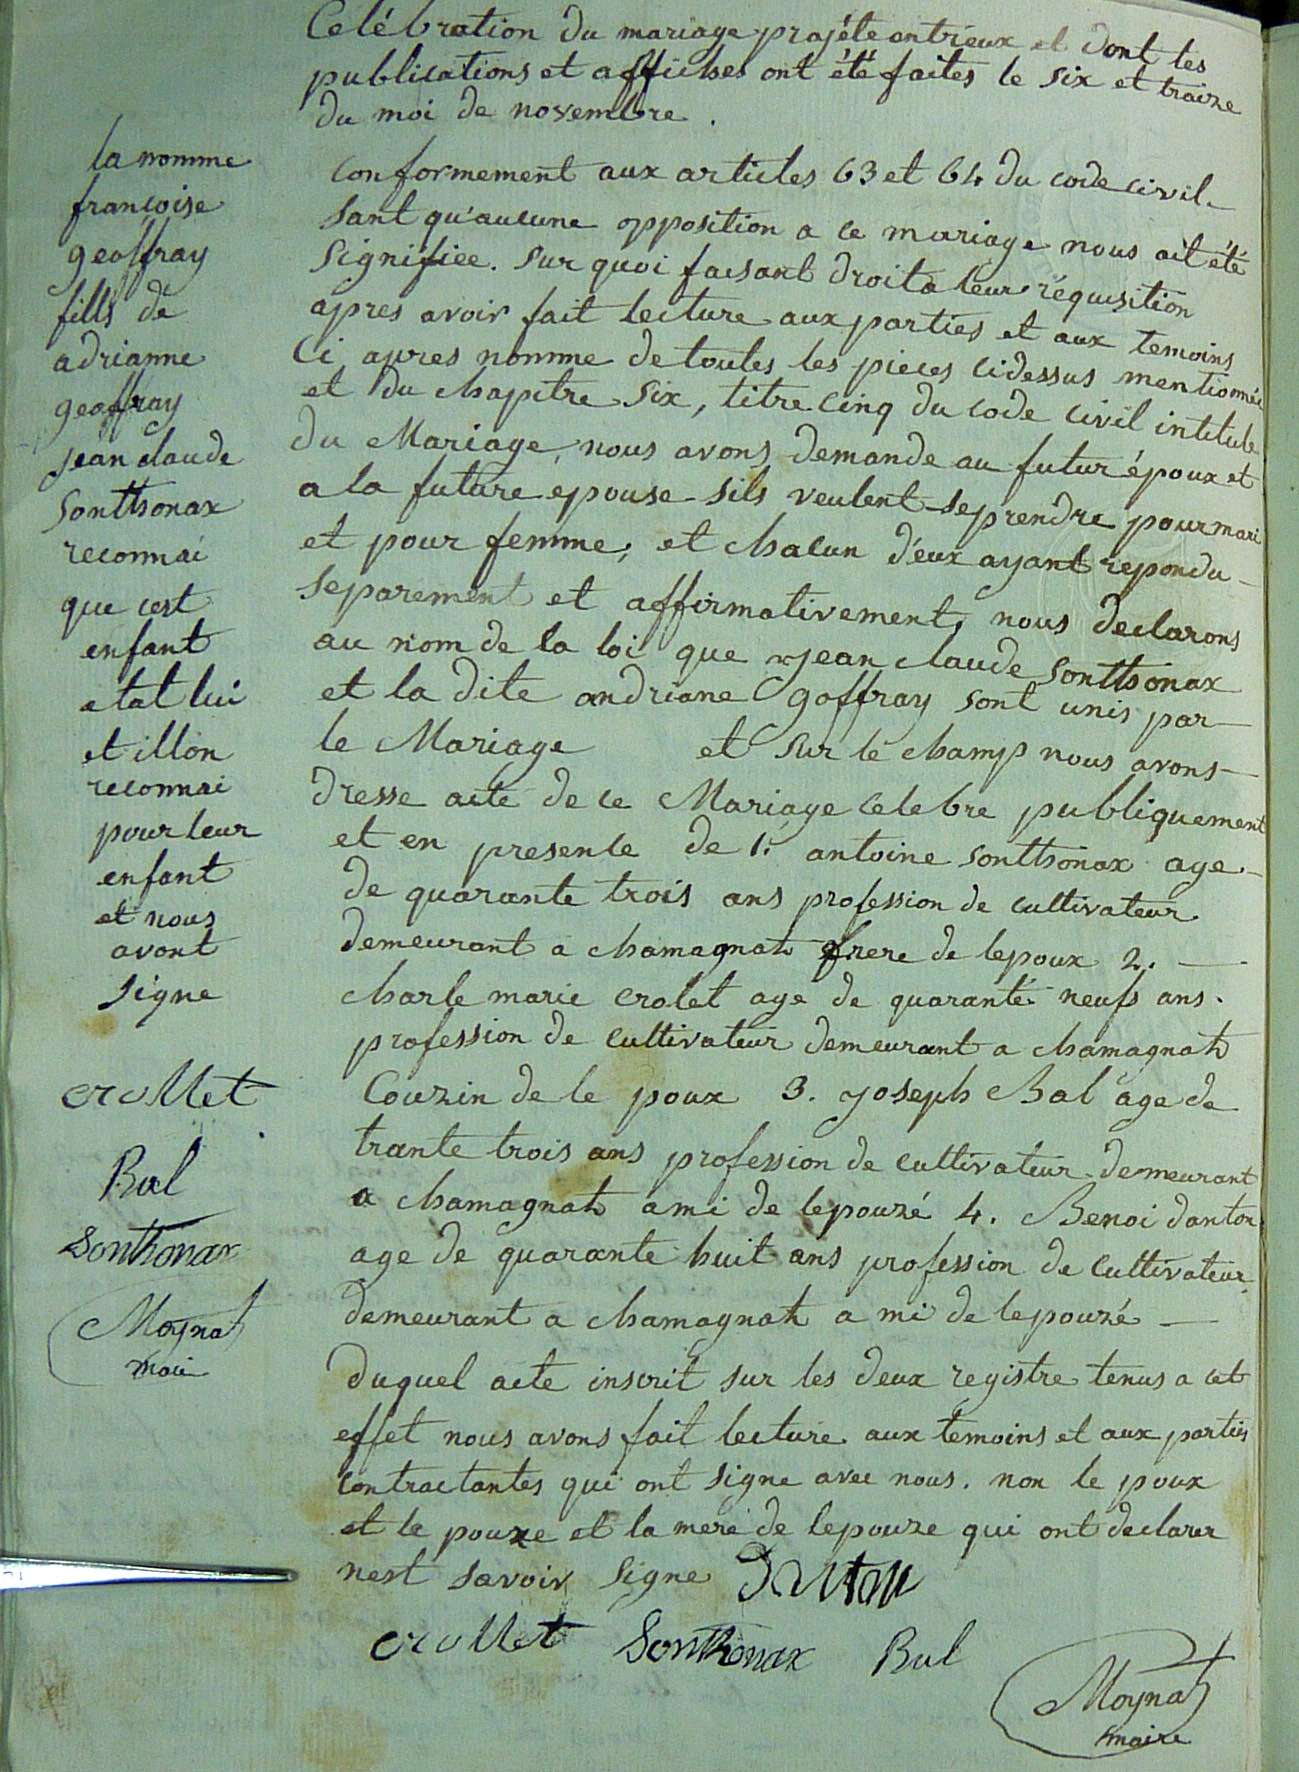 Celébration du mariage projéte entreux et dont les
publications et affiches ont été faites le six et traize
du moi de novembre.
conformement aux articles 63 et 64 du code civil
sant qu'aucune opposition a ce mariage nous ait été
signifiee. sur quoi faisant droit a leur réquisition
apres avoir fait lecture aux parties et aux temoins
Ci apres nomme de toutes les pieces cidessus mentionnée
et du chapitre six, titre cinq du code civil intitule
du Mariage, nous avons demande au futur époux et
a la future epouse sils veulent se prendre pour mari
et pour femme, et chacun d'eux ayant repondu
separement et affirmativement, nous declarons
au nom de la loi que jean claude sonttsonax
et la dite andriane goffray sont unis par
le Mariage et sur le champ nous avons
dresse acte de ce Mariage celebre publiquement
et en presente de 1. antoine sonttsonax age
de quarante trois ans profession de cultivateur
demeurant a chamagnat frere de lepoux 2.
charle marie crolet age de quarante neufs ans.
profession de cultivateur demeurant a chamagnat
Couzin de le poux 3. joseph Bal age de
trante trois ans profession de cultivateur demeurant
a chamagnat ami de lepouzé 4. Benoi danton
age de quarante huit ans profession de cultivateur
demeurant a chamagnat a mi de lepouzé
duquel acte inscrit sur les deux registre tenus a cet
effet nous avons fait lecture aux temoins et aux parties
contractantes qui ont signe avec nous. non le poux
et le pouze et la mere de lepouze qui ont declarer
nest savoir signe Danton
crollet Sonthonax Bal
Moynat
maire
la nomme
francoise
geoffray
fills de
adrianne
geoffray
jean claude
Sonttsonax
reconnai
que cest
enfant
etat lui
et illon
reconnai
pour leur
enfant
et nous
avont
signe
crollet
Bal
Sonthonax
Moynat
maire